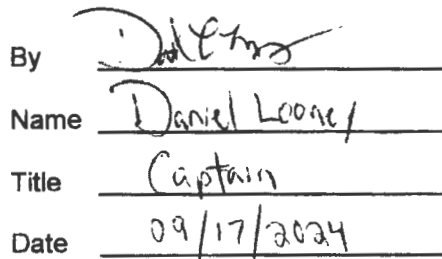 By
Name Daniel Looney
Title Captain
Date 09/17/2024